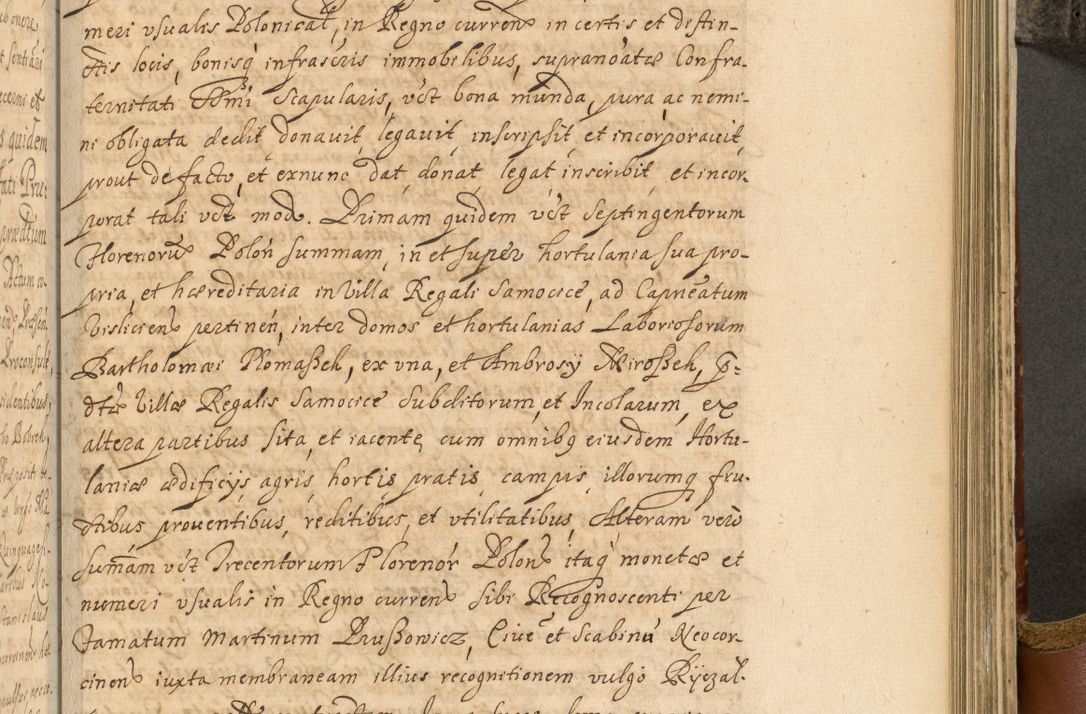 meri vsualis Polonical, in Regno curren in certis et distin-
ctis locis, bonisq infrascris immobilibus, supranoatæ Confra-
ternitati SSmi Scapularis, včt bona munda, pura ac nemi-
ni obligata dedit, donavit, legavit, inscripsit, et incorporavit,
prout de facto, et exnunc dat, donat, legat inscribit, et incor-
porat tali včt modo. Primam quidem včt Septingentorum
Florenorũ Polon summam, in et super hortulania sua pro-
pria, et hæreditaria in Villa Regali Samocice, ad Capneatum
Visliciens pertinen, inter domos et hortulanias Laboriosorum
Bartholomæi Romaßek, ex vna, et Ambrosÿ Miroßek, p-
dtæ Villæ Regalis Samocice Subditorum, et Incolarum, ex
altera partibus sita, et iacente, cum omnibq eiusdem Hortu-
laniæ ædificÿs, agris, hortis, pratis, campis, illorumq fru-
ctibus proventibus, reditibus, et vtilitatibus. Alteram verò
summam včt Trecentorum Florenor Polon itaq monetæ et
numeri vsualis in Regno curren sibi Recognoscenti per
Famatum Martinum Prußowicz, Ciuẽ et Scabinũ Neocor-
cinen iuxta membraneam illius recognitionem vulgo Ryczał-